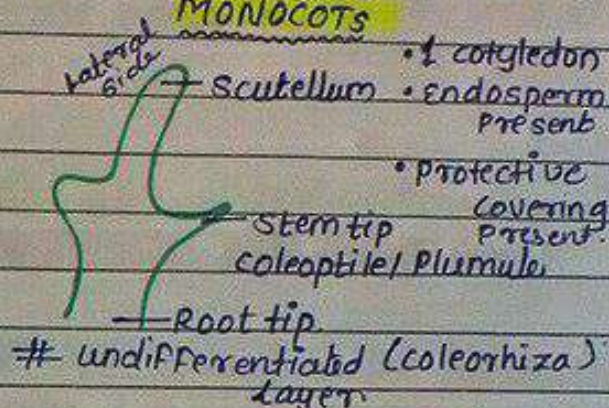 MONOCOTS
Lateral
Side
Scutellum
• 1 cotyledon
• Endosperm
Present.
• Protective
covering
Present.
Stem tip
coleoptile/ Plumule
Root tip
# undifferentiated (coleorhiza)
Layer